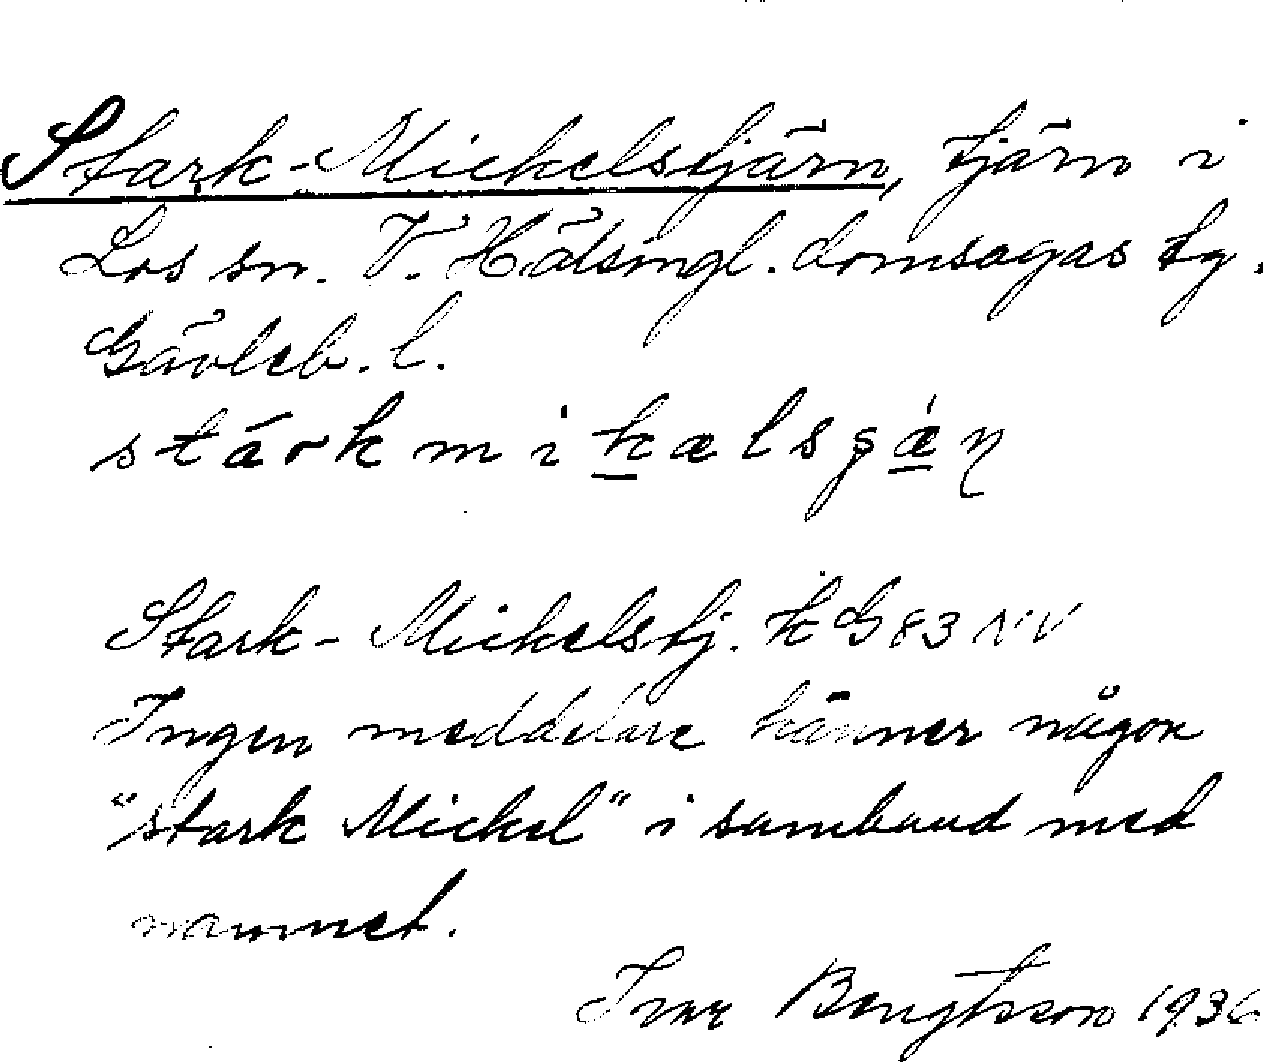 Stark-Mickelstjärn, tjärn i
Los sn. V. Hälsingl. domsagas tg.
Gävleb. l.
stárkmikælsʂǽɳ
Stark-Mickelstj. K G 83 NV
Ingen meddelare känner någon
"stark Mickel" i samband med
namnet.
Ivar Bengtsson 1936